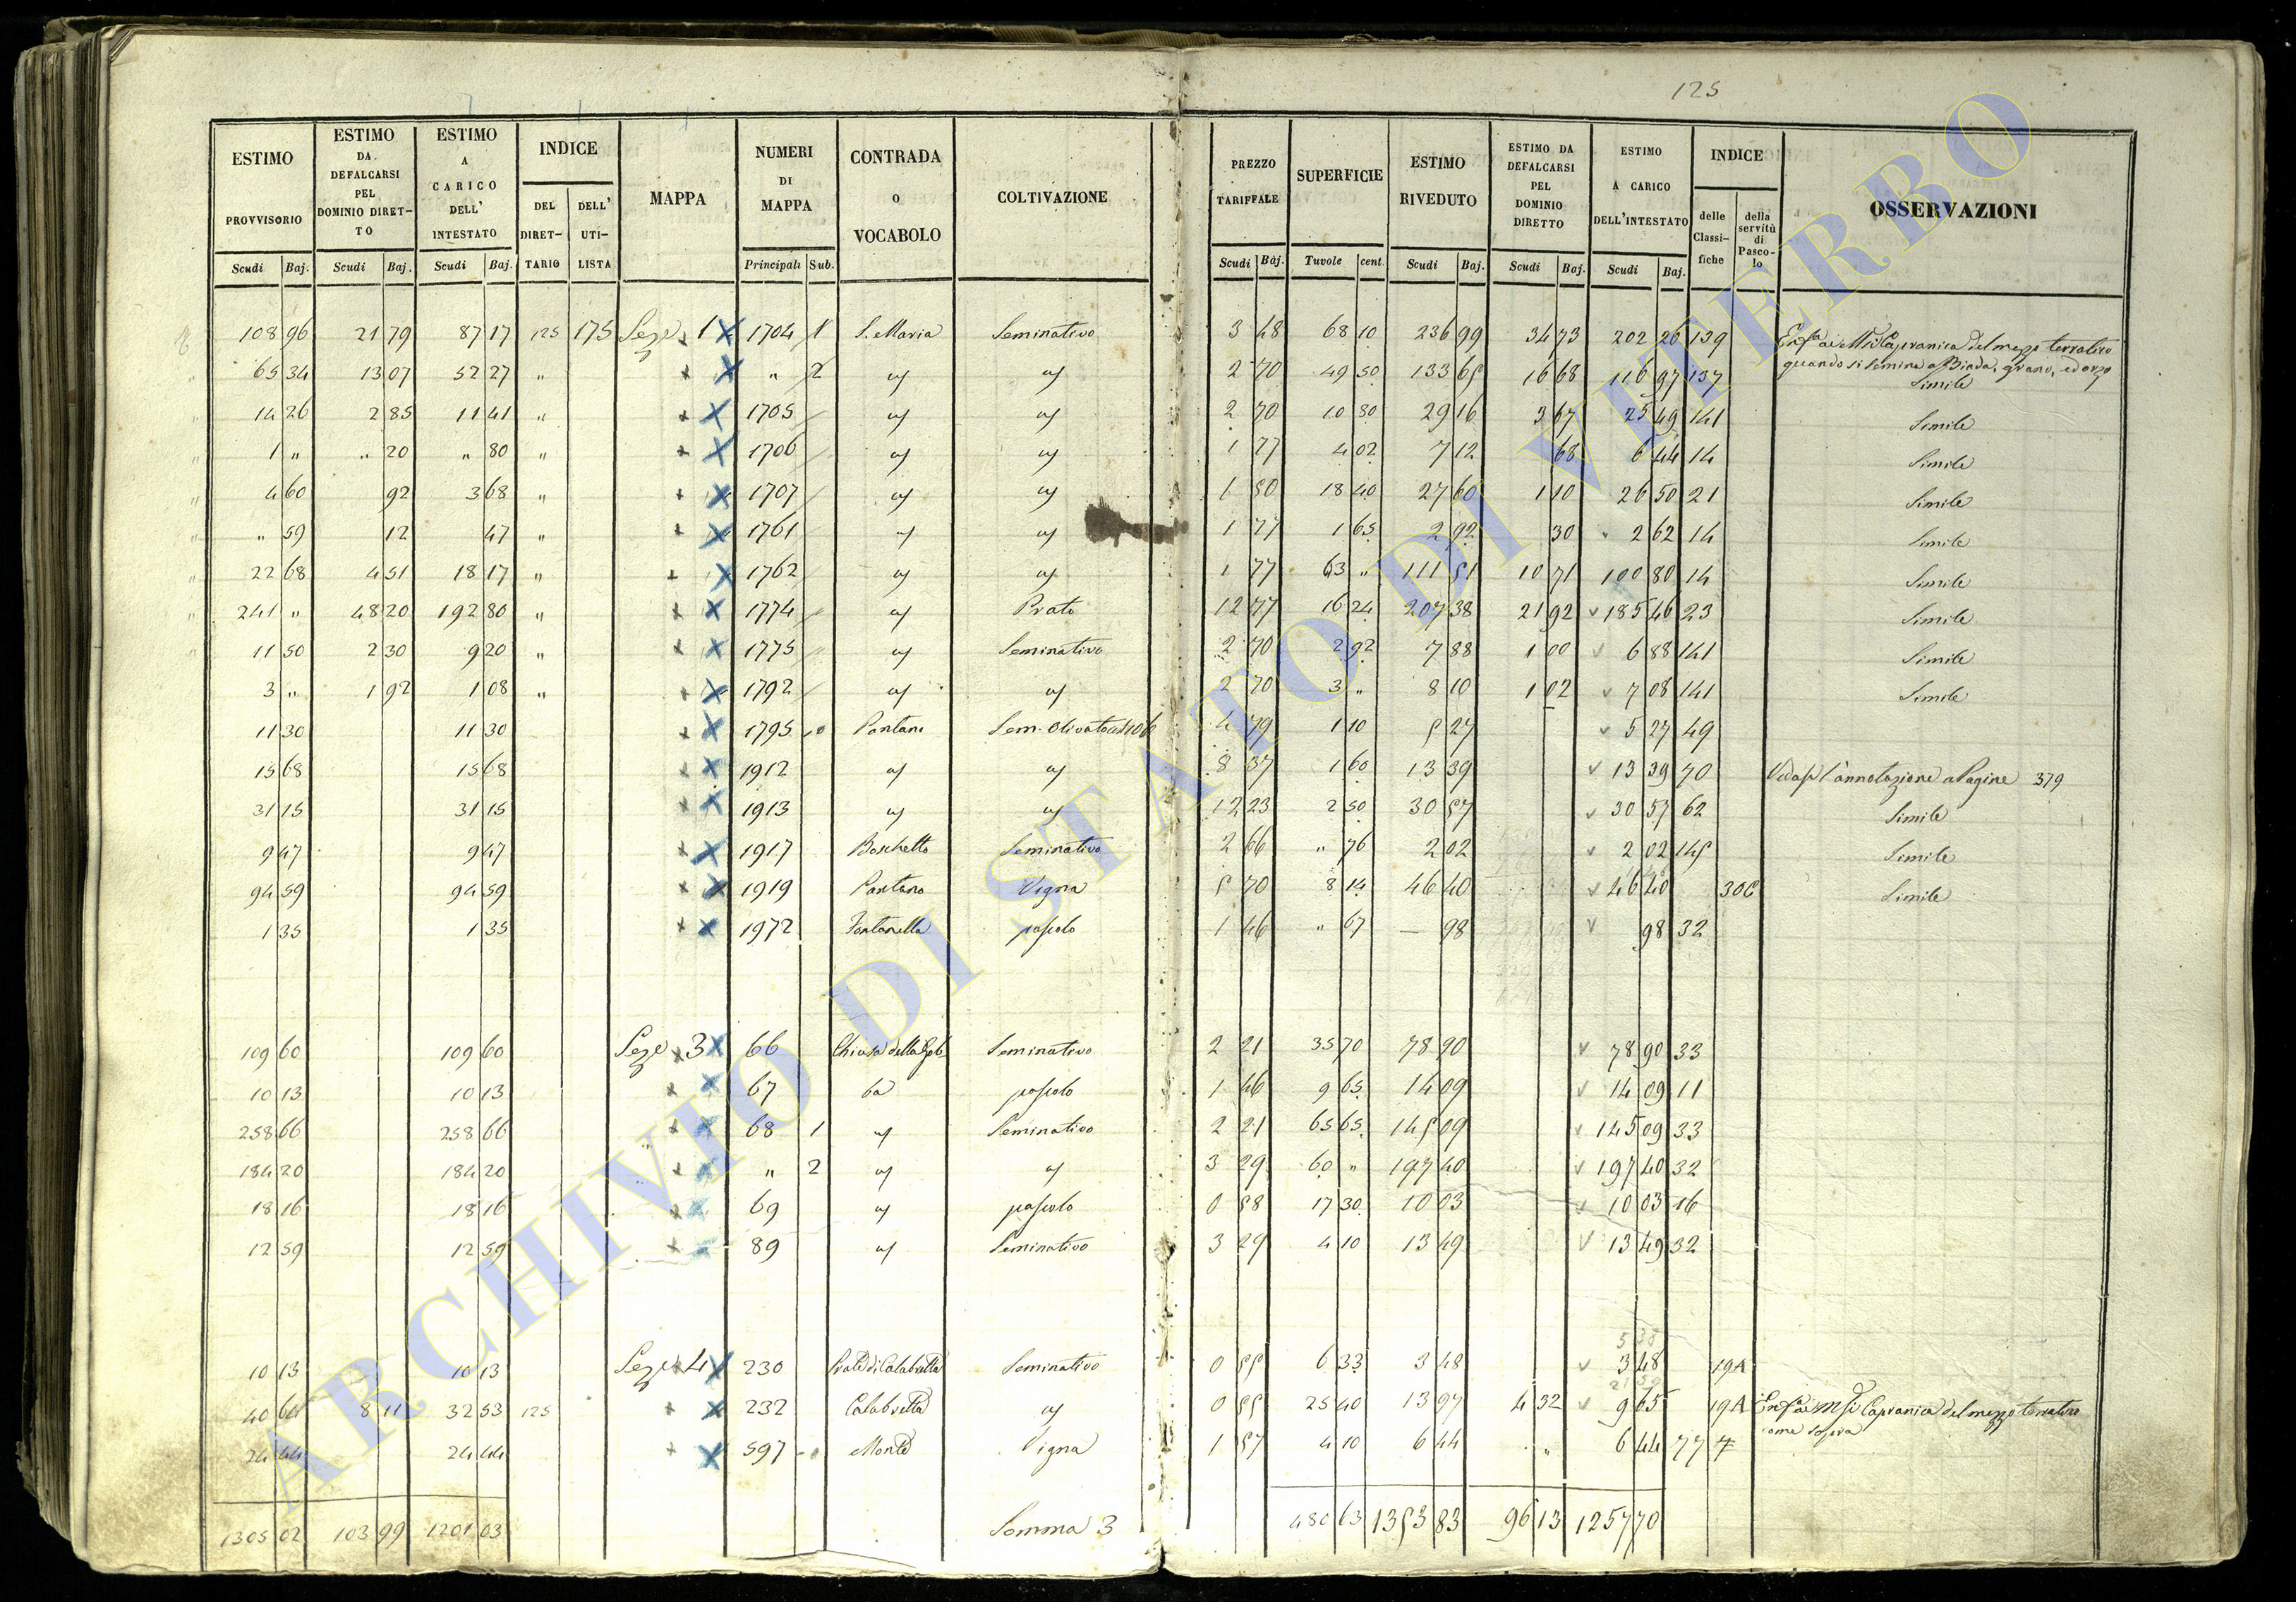 125
ESTIMO PROVVISORIO | ESTIMO DA DEFALCARSI PEL DOMINIO DIRET-TO | ESTIMO A CARICO DELL' INTESTATO | INDICE | MAPPA | NUMERI DI MAPPA | CONTRADA o VOCABOLO | COLTIVAZIONE | PREZZO TARIFFALE | SUPERFICIE | ESTIMO RIVEDUTO | ESTIMO DA DEFALCARSI PEL DOMINIO DIRETTO | ESTIMO A CARICO DELL'INTESTATO | INDICE | OSSERVAZIONI
DEL DIRET-TARIO | DELL' UTI-LISTA | delle Classi-fiche | della servitù di Pasco-lo
Scudi | Baj. | Scudi | Baj. | Scudi | Baj. | Principali | Sub. | Scudi | Baj. | Tavole | cent. | Scudi | Baj. | Scudi | Baj. | Scudi | Baj.
108 96 | 21 79 | 87 17 | 125 | 175 | Seze 1 | 1704 | 1 | S. Maria | Seminativo | 3 48 | 68 10 | 236 99 | 34 73 | 202 26 | 139 | Capranica del mezzo terratico
quando si semina a Biada, grano, ed orzo
65 34 | 13 07 | 52 27 | " | " | 2 | " | " | 2 70 | 49 50 | 133 65 | 16 68 | 116 97 | 137 | Simile
14 26 | 2 85 | 11 41 | " | 1705 | " | " | 2 70 | 10 80 | 29 16 | 3 67 | 25 49 | 141 | Simile
1 " | " 20 | " 80 | " | 1706 | " | " | 1 77 | 4 02 | 7 12 | 68 | 6 44 | 14 | Simile
4 60 | 92 | 3 68 | " | 1707 | " | " | 1 50 | 18 40 | 27 60 | 1 10 | 26 50 | 21 | Simile
" 59 | 12 | 47 | " | 1761 | " | " | 1 77 | 1 65 | 2 92 | 30 | 2 62 | 14 | Simile
22 68 | 4 51 | 18 17 | " | 1762 | " | " | 1 77 | 63 " | 111 51 | 10 71 | 100 80 | 14 | Simile
241 " | 48 20 | 192 80 | " | 1774 | " | Prato | 12 77 | 16 24 | 207 38 | 21 92 | 185 46 | 23 | Simile
11 50 | 2 30 | 9 20 | " | 1775 | " | Seminativo | 2 70 | 2 92 | 7 88 | 1 00 | 6 88 | 141 | Simile
3 " | 1 92 | 1 08 | " | 1792 | " | " | 2 70 | 3 " | 8 10 | 1 02 | 7 08 | 141 | Simile
11 30 | 11 30 | 1795 | Pantano | Sem. Olivato | 4 79 | 1 10 | 5 27 | 5 27 | 49
15 68 | 15 68 | 1912 | " | " | 8 37 | 1 60 | 13 39 | 13 39 | 70 | Vedasi l'annotazione a Pagine 379
31 15 | 31 15 | 1913 | " | " | 12 23 | 2 50 | 30 57 | 30 57 | 62 | Simile
9 47 | 9 47 | 1917 | Boschetto | Seminativo | 2 66 | " 76 | 2 02 | 2 02 | 145 | Simile
94 59 | 94 59 | 1919 | Pantano | Vigna | 5 70 | 8 14 | 46 40 | 46 40 | 30C | Simile
1 35 | 1 35 | 1972 | Fontanella | pascolo | 1 46 | " 67 | — 98 | 98 | 32
109 60 | 109 60 | Seze 3 | 66 | Chiusa della | Seminativo | 2 21 | 35 70 | 78 90 | 78 90 | 33
10 13 | 10 13 | 67 | pascolo | 1 46 | 9 65 | 14 09 | 14 09 | 11
258 66 | 258 66 | 68 | 1 | " | Seminativo | 2 21 | 65 65 | 145 09 | 145 09 | 33
184 20 | 184 20 | " | 2 | " | " | 3 29 | 60 " | 197 40 | 197 40 | 32
18 16 | 18 16 | 69 | " | pascolo | 0 58 | 17 30 | 10 03 | 10 03 | 16
12 59 | 12 59 | 89 | " | Seminativo | 3 29 | 4 10 | 13 49 | 13 49 | 32
10 13 | 10 13 | Seze 4 | 230 | Prate di Calabretta | Seminativo | 0 55 | 6 33 | 3 48 | 3 48 | 19A
40 64 | 8 11 | 32 53 | 125 | 232 | Calabretta | " | 0 55 | 25 40 | 13 97 | 4 32 | 9 65 | 19A | Capranica del mezzo terratico
come sopra
24 44 | 24 44 | 597 | Monte | Vigna | 1 57 | 4 10 | 6 44 | " | 6 44 | 77
1305 02 | 103 99 | 1201 03 | Somma 3 | 480 63 | 1353 83 | 96 13 | 1257 70
ARCHIVIO DI STATO DI VITERBO